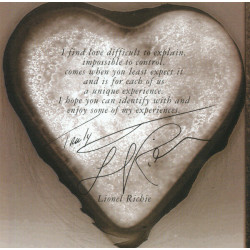 I find love difficult to explain,
impossible to control,
comes when you least expect it
and is for each of us
a unique experience.
I hope you can identify with and
enjoy some of my experiences.
Lionel Richie